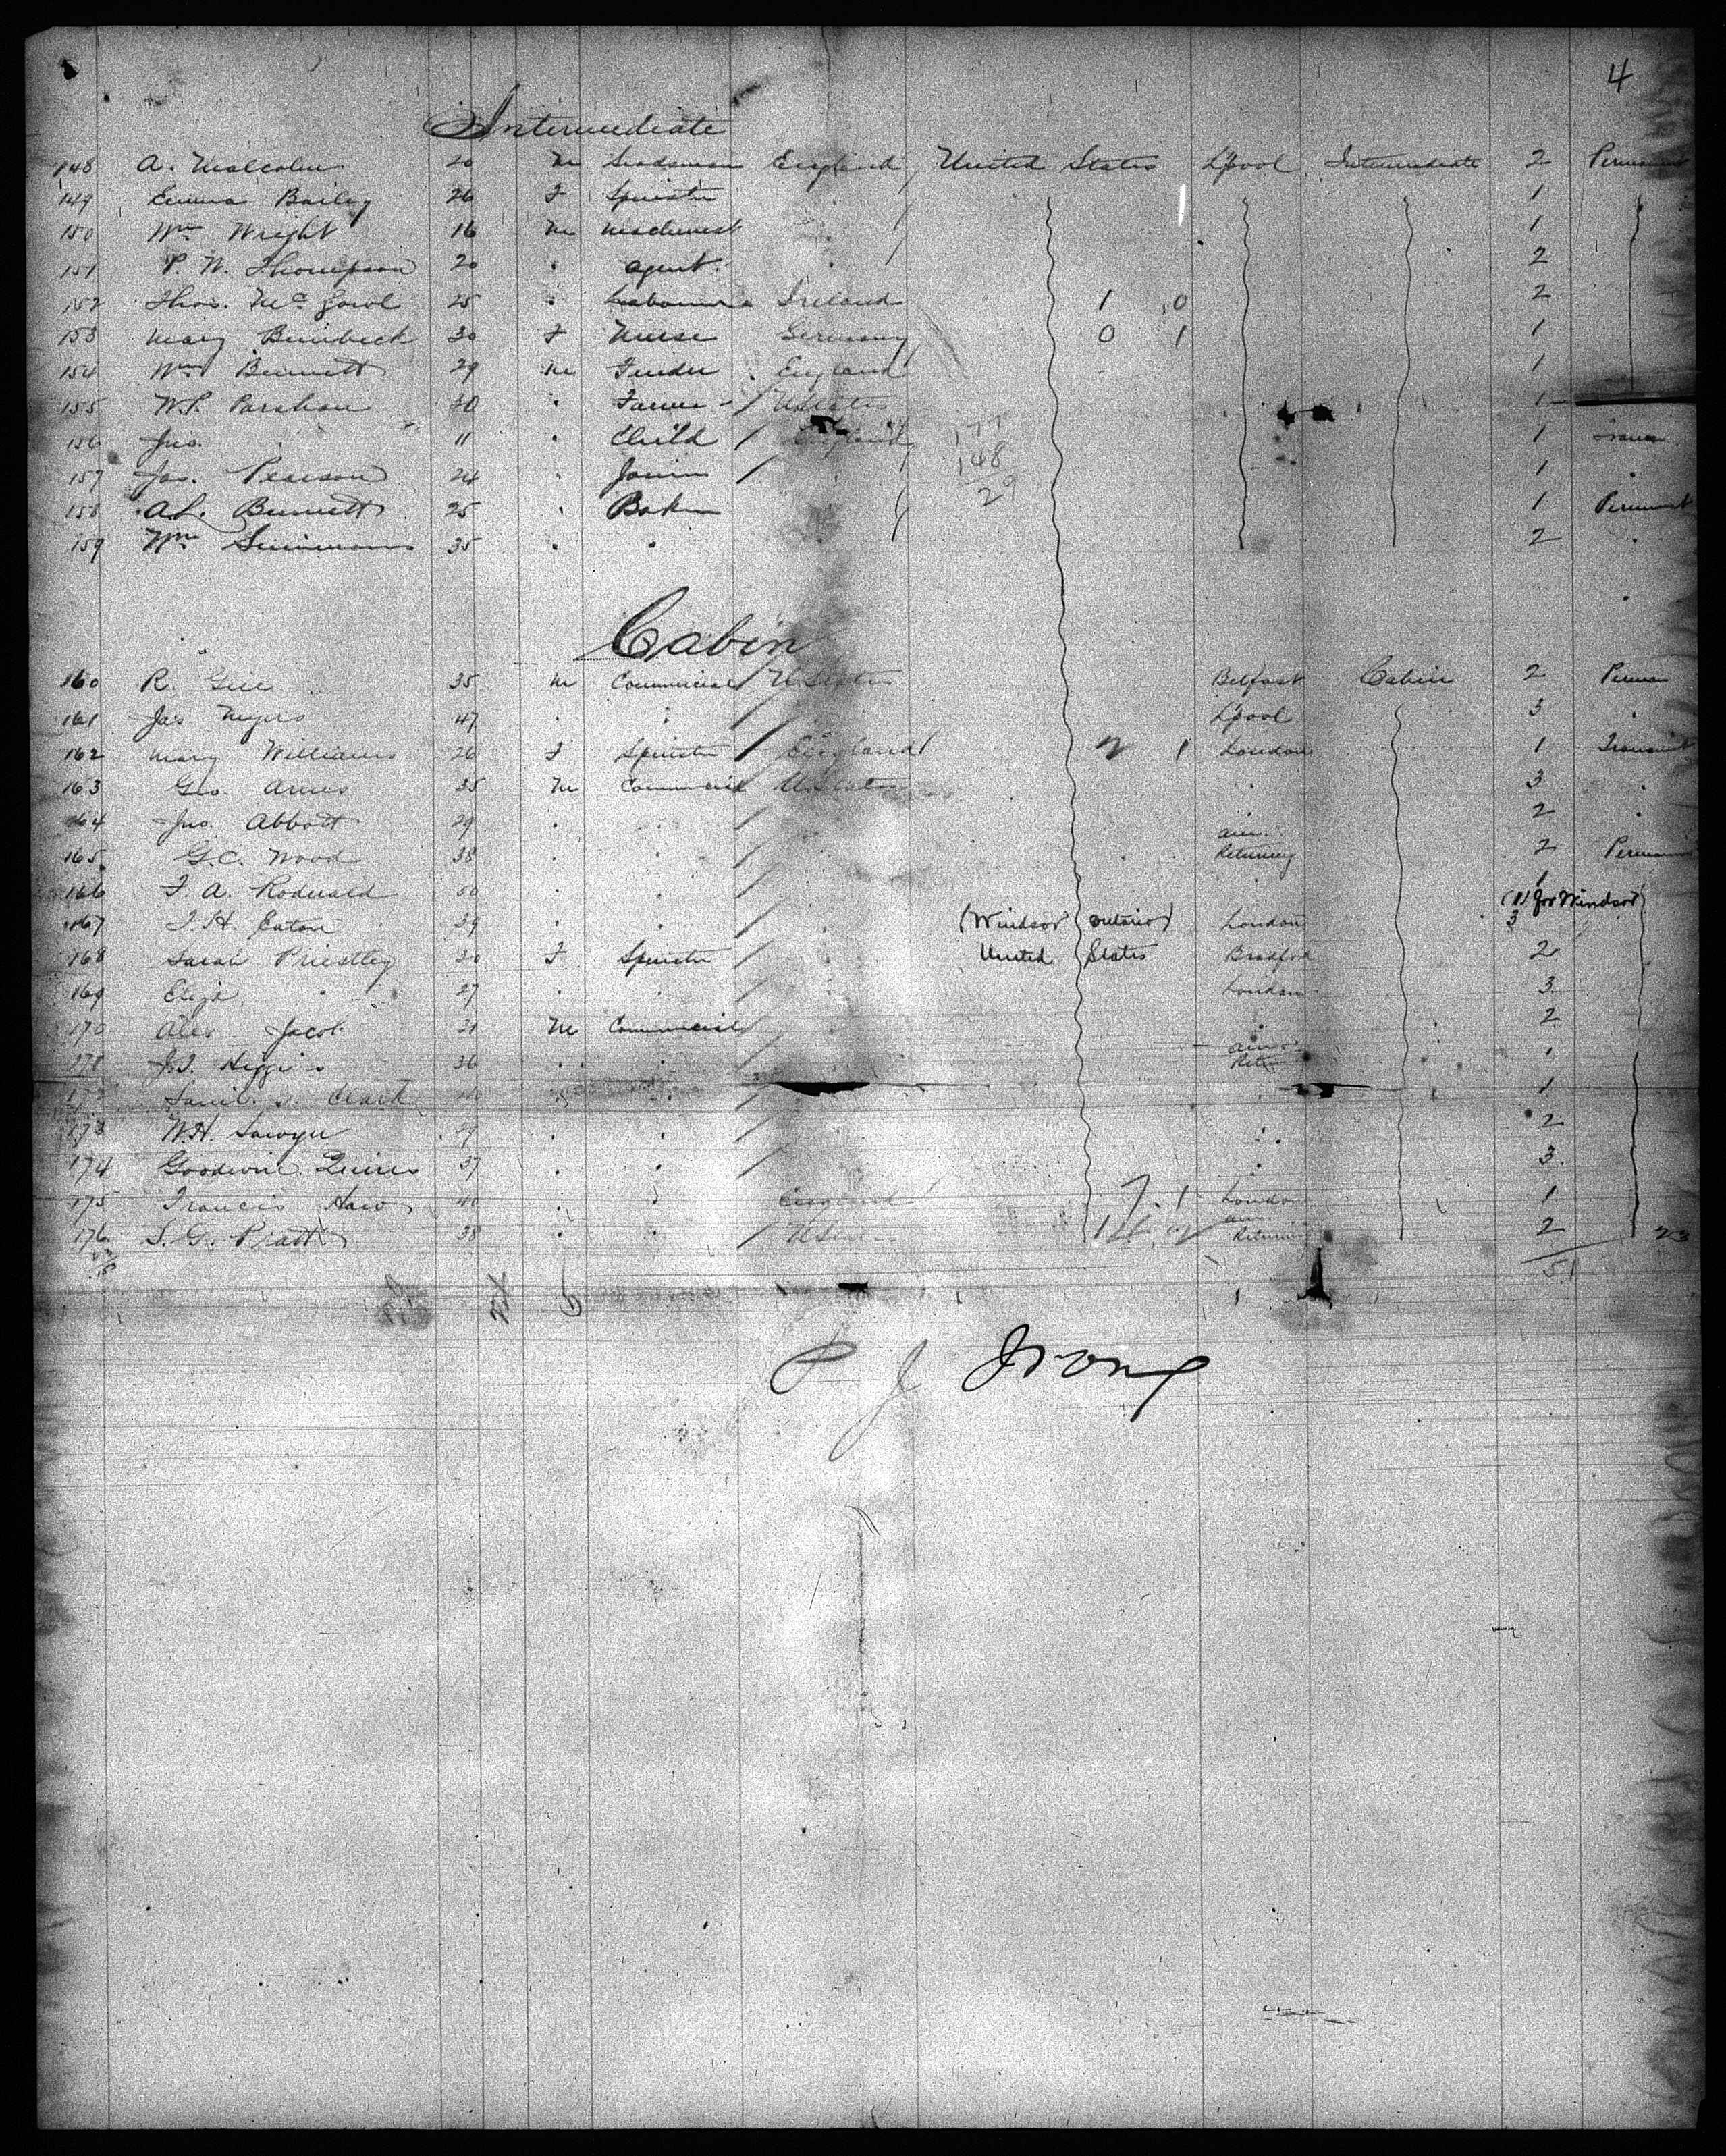 4
Intermediate
148 A. Malcolm 20 M Seedsman England United States L'pool Intermediate 2 Permanent
149 Emma Bailey 26 F Spinster 1
150 Wm Wright 16 M Machinest 1
151 P. W. Thompson 20 " agent 2
152 Thos. Mc 25 " Labourer Ireland 1 0 2
153 Mary 30 F Nurse Germany 0 1 1
154 Wm Bennett 29 M England 1
155 W.P. 30 " Farmer U States 1
156 Jno. " 11 " Child England 1
157 Jas. Pearson 24 " Joiner 1
158 A.L. Bennett 25 " Baker 1 Permanent
159 Wm Simmons 35 " " 2 "
177
148
29
Cabin
160 R. Gee 35 M Commercial U States Belfast Cabin 2 Perman
161 Jas Myers 47 " " L'pool 3 "
162 Mary Williams 26 F Spinster England 2 1 London 1 Transient
163 Geo. Ames 35 M Commercial U States " " 3 "
164 Jno. Abbott 29 " " " 2 "
165 G.C. Wood 38 " " " Am. Returning 2 Permanent
166 F. A. Rodewald 50 " " " " 1
(1) for Windsor
167 F.H. Eaton 39 " " " (Windsor Ontario) London 3
168 Sarah Priestley 30 F Spinster United States Bradford 2
169 Eliza " 27 " " " London 3
170 Alex Jacob 21 M Commercial " 2
171 J.J. Higgins 36 " " Am. Retu 1
172 Saml. Clark 40 " " " 1
173 W.H. Sawyer 29 " " " 2
174 Goodwin 37 " " " 3
175 Francis 40 " " England 7. 1 London 1
176 S. G. Pratt 38 " " U States 14 2 Am. Returning 2 23
51
P J Irving